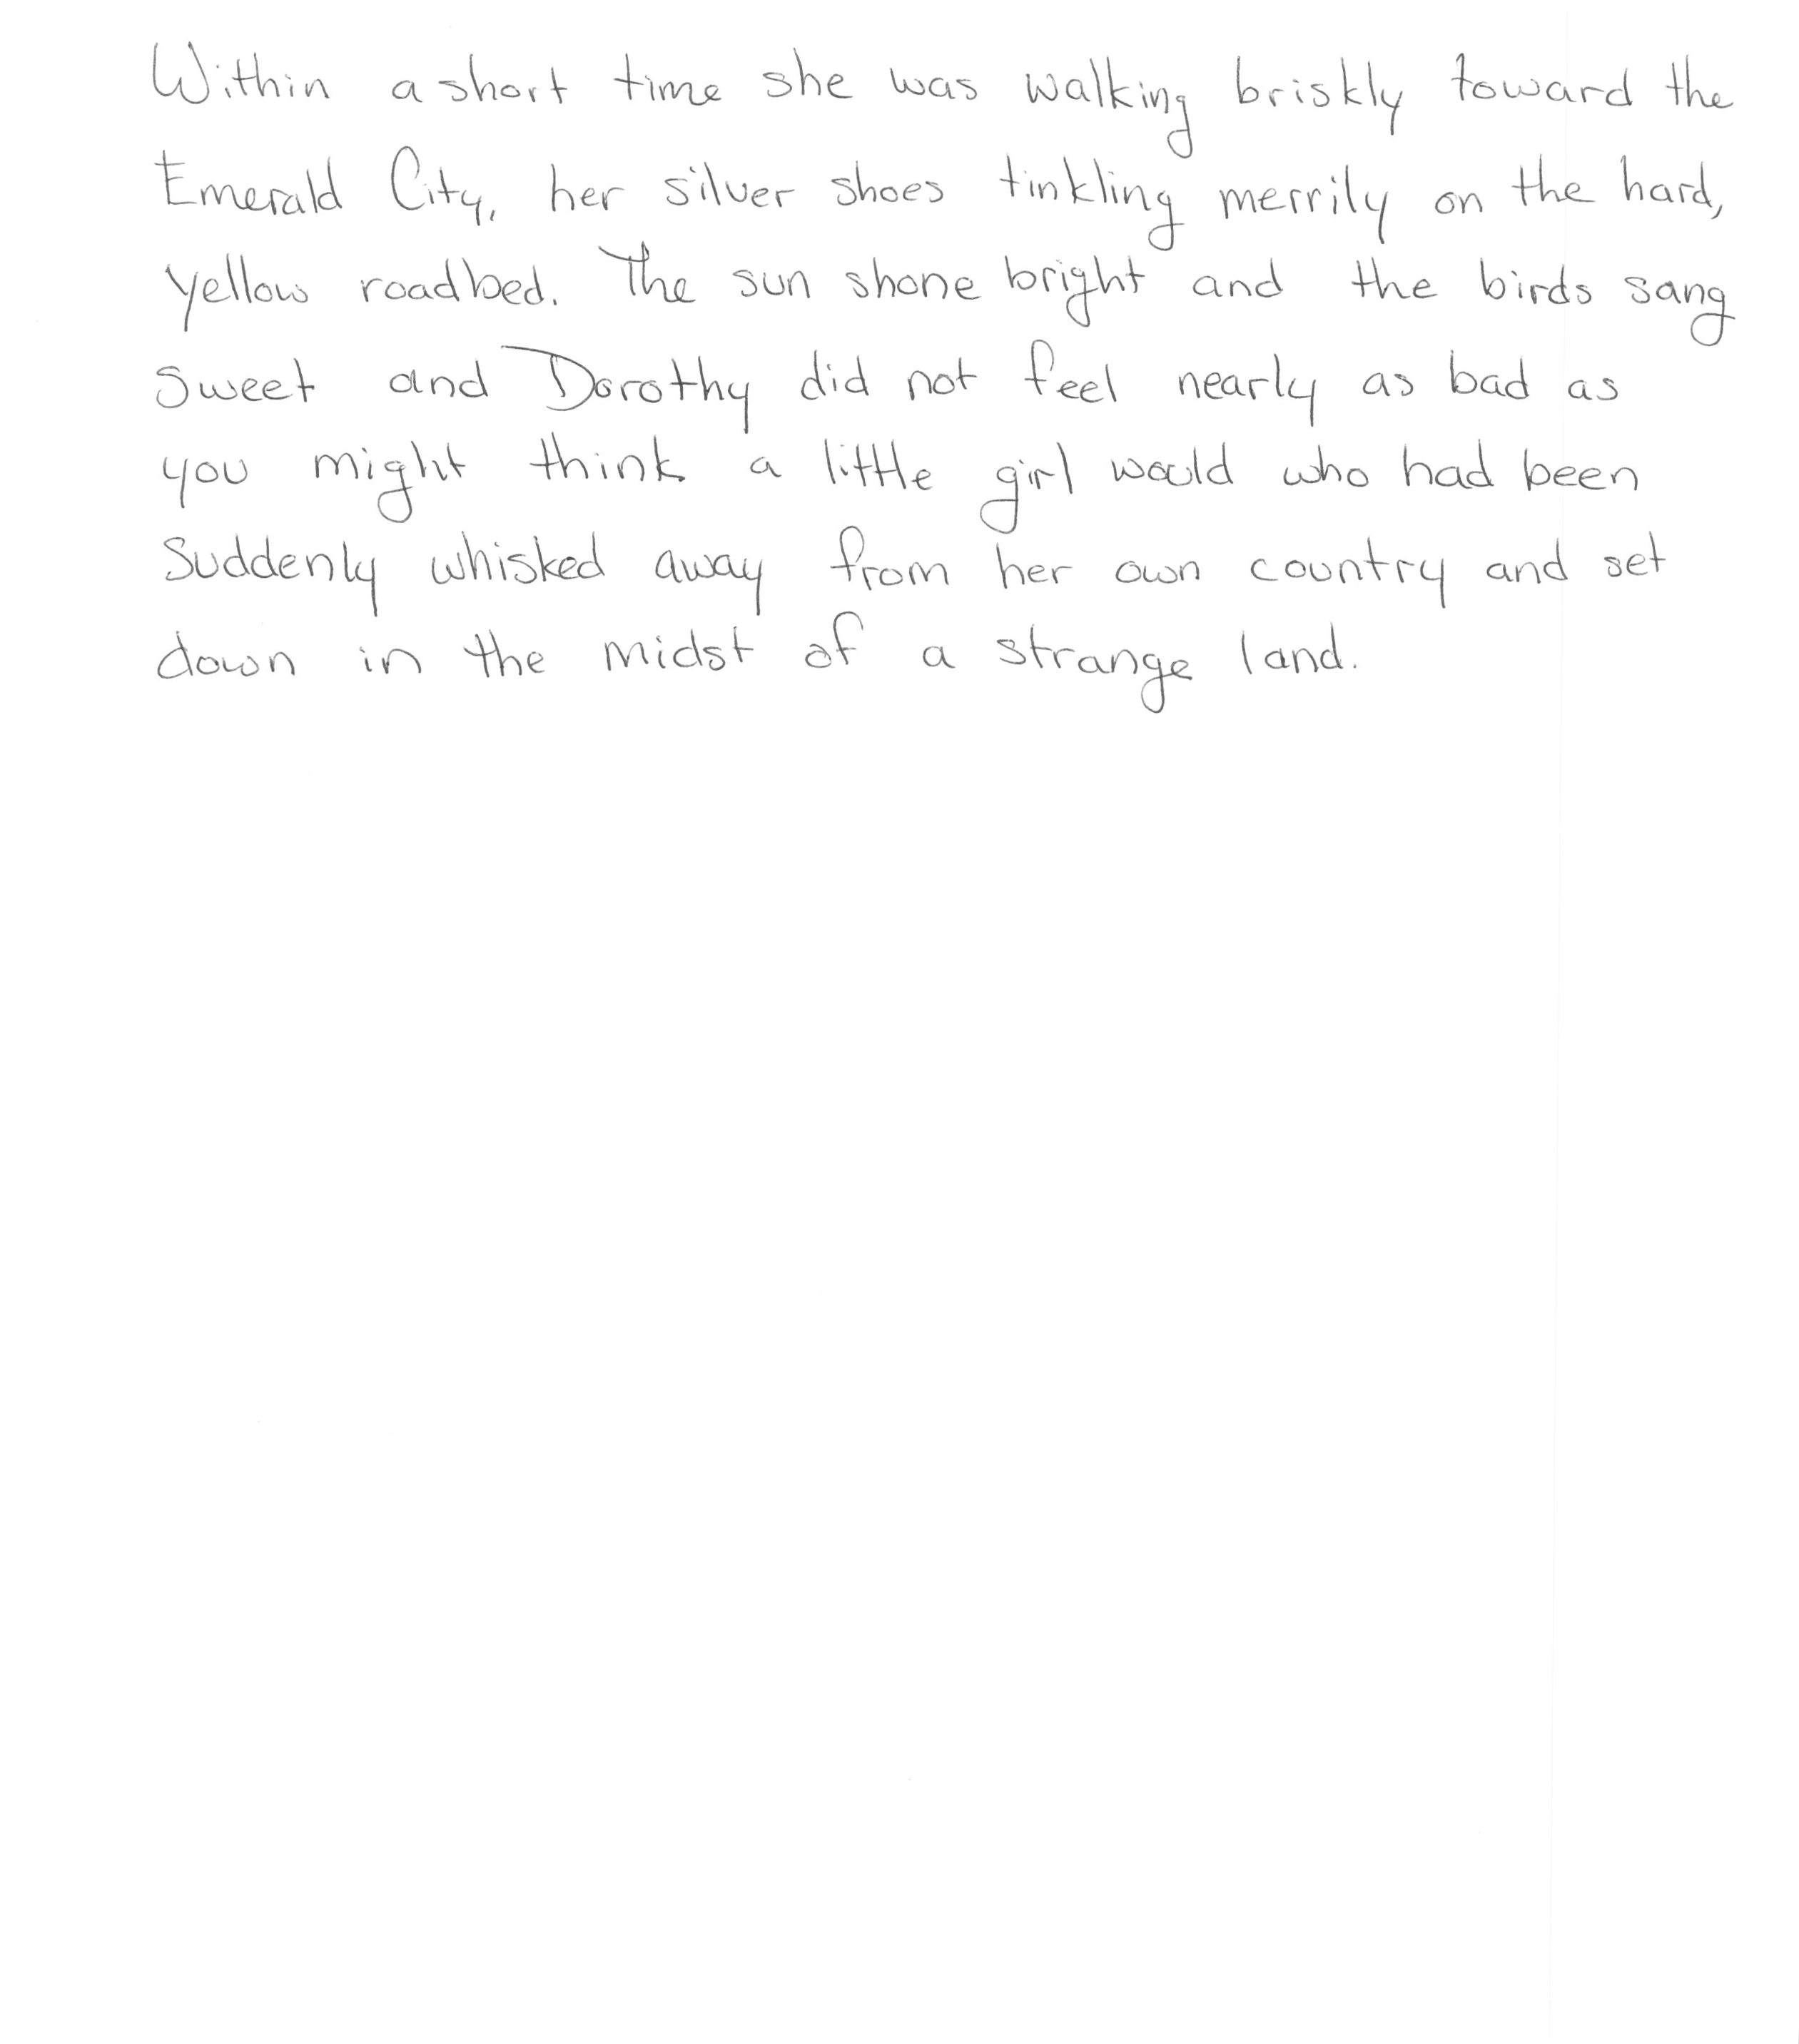 Within a short time she was walking briskly toward the
Emerald City, her silver shoes tinkling merrily on the hard,
yellow roadbed. The sun shone bright and the birds sang
sweet and Dorothy did not feel nearly as bad as
you might think a little girl would who had been
suddenly whisked away from her own country and set
down in the midst of a strange land.